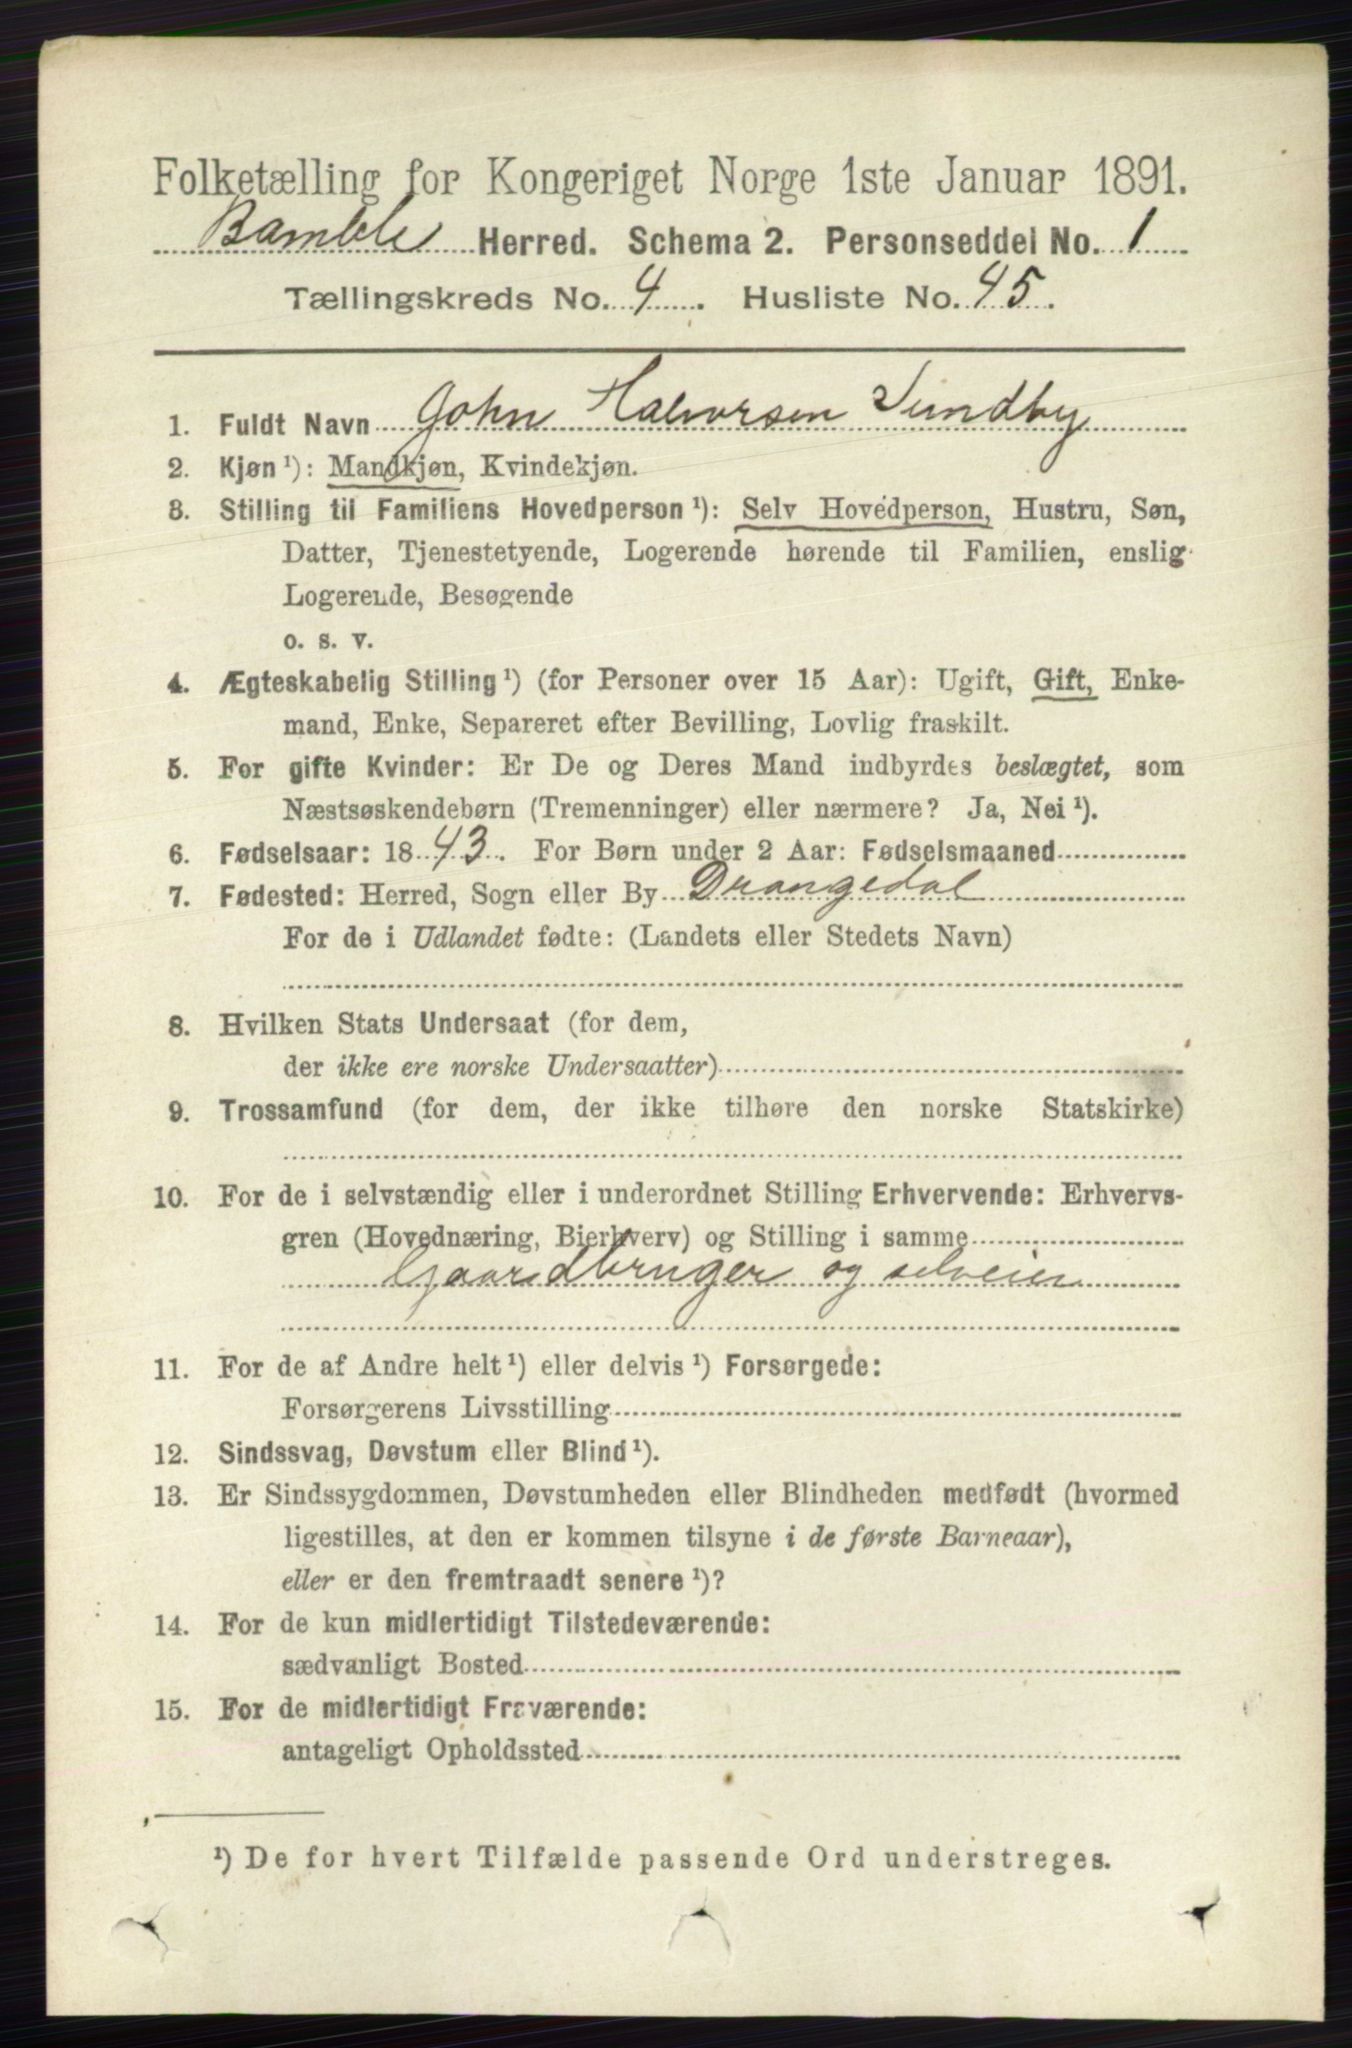 Folketælling for Kongeriget Norge 1ste Januar 1891.
Bamble Herred. Schema 2. Personseddel No. 1
Tællingskreds No. 4. Husliste No. 45.
1. Fuldt Navn John Halvorsen Sundby
2. Kjøn¹): Mandkjøn, Kvindekjøn.
3. Stilling til Familiens Hovedperson¹): Selv Hovedperson, Hustru, Søn,
Datter, Tjenestetyende, Logerende hørende til Familien, enslig
Logerende, Besøgende
o. s. v.
4. Ægteskabelig Stilling¹) (for Personer over 15 Aar): Ugift, Gift, Enke-
mand, Enke, Separeret efter Bevilling, Lovlig fraskilt.
5. For gifte Kvinder: Er De og Deres Mand indbyrdes beslægtet, som
Næstsøskendebørn (Tremenninger) eller nærmere? Ja, Nei¹).
6. Fødselsaar: 1843. For Børn under 2 Aar: Fødselsmaaned
7. Fødested: Herred, Sogn eller By Drangedal
For de i Udlandet fødte: (Landets eller Stedets Navn)
8. Hvilken Stats Undersaat (for dem,
der ikke ere norske Undersaatter)
9. Trossamfund (for dem, der ikke tilhøre den norske Statskirke)
10. For de i selvstændig eller i underordnet Stilling Erhvervende: Erhvervs-
gren (Hovednæring, Bierhverv) og Stilling i samme
Gaardbruger og selveier
11. For de af Andre helt¹) eller delvis¹) Forsørgede:
Forsørgerens Livsstilling
12. Sindssvag, Døvstum eller Blind¹).
13. Er Sindssygdommen, Døvstumheden eller Blindheden medfødt (hvormed
ligestilles, at den er kommen tilsyne i de første Barneaar),
eller er den fremtraadt senere¹)?
14. For de kun midlertidigt Tilstedeværende:
sædvanligt Bosted
15. For de midlertidigt Fraværende:
antageligt Opholdssted
¹) De for hvert Tilfælde passende Ord understreges.